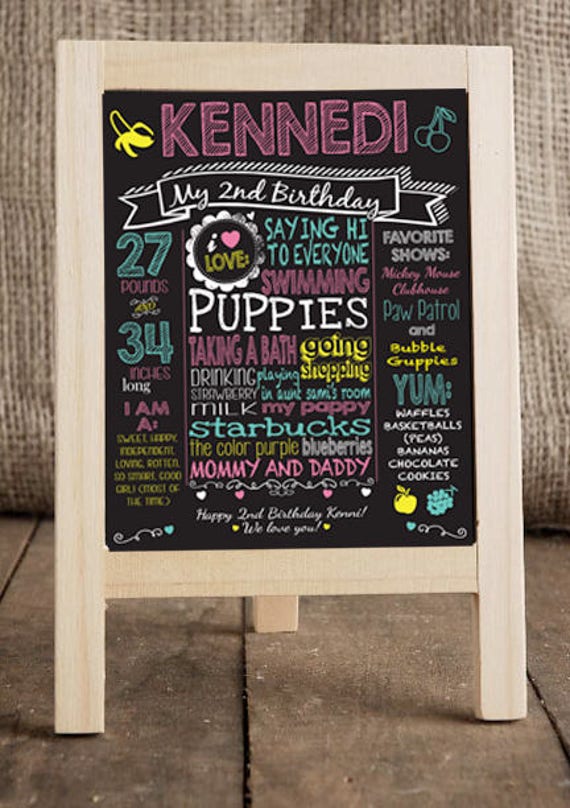 KENNEDI
My 2nd Birthday
27
POUNDS
AND
34
INCHES
long
I AM
A:
SWEET, HAPPY,
INDEPENDENT,
LOVING, ROTTEN,
SO SMART, GOOD
GIRL! (MOST OF
THE TIME)
i
LOVE:
SAYING HI
TO EVERYONE
SWIMMING
PUPPIES
TAKING A BATH
going
shopping
DRINKING
STRAWBERRY
MILK
playing
in aunt sami's room
my pappy
starbucks
the color purple blueberries
MOMMY AND DADDY
FAVORITE
SHOWS:
Mickey Mouse
Clubhouse
Paw Patrol
and
Bubble
Guppies
YUM:
WAFFLES
BASKETBALLS
(PEAS)
BANANAS
CHOCOLATE
COOKIES
Happy 2nd Birthday Kenni!
We love you!